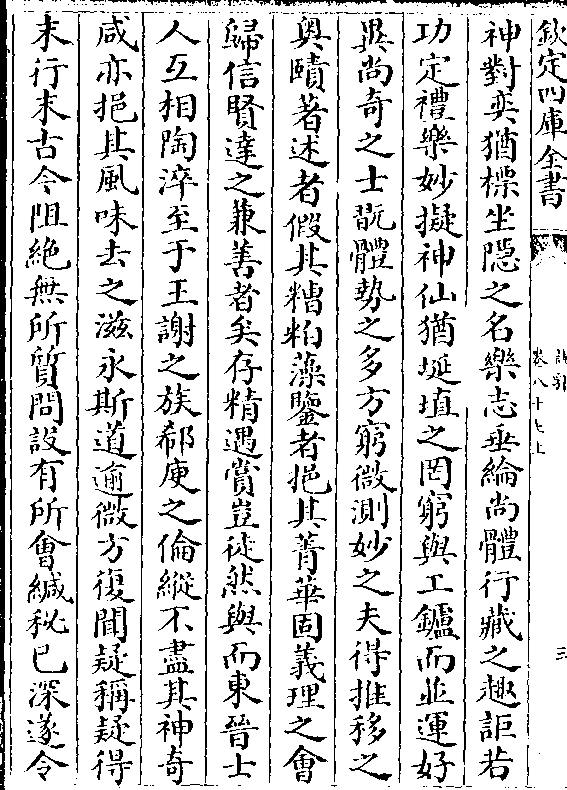 欽定四庫全書
說郛
卷八十七上
三
神對奕猶標坐隱之名樂志垂綸尚體行藏之趣詎若
功定禮樂妙擬神仙猶埏埴之罔窮與工鑪而並運好
異尚奇之士翫體勢之多方窮微測妙之夫得推移之
奥賾著述者假其糟粕藻鑒者挹其菁華固義理之會
歸信賢達之兼善者矣存精遇賞豈徒然與而東晉士
人互相陶淬至于王謝之族郗庾之倫縱不盡其神奇
咸亦挹其風味去之滋永斯道逾微方復聞疑稱疑得
末行末古今阻絶無所質問設有所會緘秘已深遂令